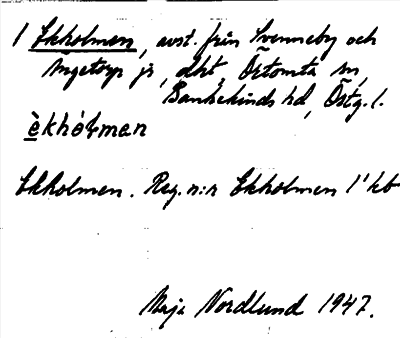 1 Ekholmen, avst. från Svenneby och
Ingetorp js, dht, Örtomta sn,
Bankekinds hd, Östg. l.
èkhòɫman
Ekholmen. Reg. n:r Ekholmen 1¹ kb
Maja Nordlund 1947.